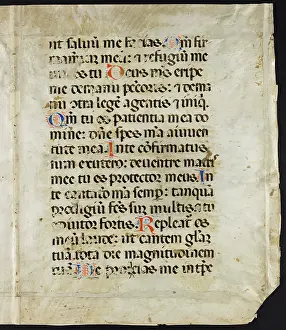 ut salvū me facias. Qm̄ fir
mam̄tum meū: et refugiū me
um es tu Deus m̄s eripe
me de manu pccōris: et de ma
nu ꝯtra legē agentis et iniq.
Qm̄ tu es patientia mea do
mine: dn̄e spes m̄a a iuven
tute mea. In te cōfirmatus
sum ex utero: de ventre matris
mee tu es protector meus. In
te cantatō m̄a semp: tanquā
prodigiū fc̄s sum multis: et tu
adiutor fortis. Repleat̄ os
meū laude: ut cantem glōr̄
tuā tota die magnitudinem
tuā. Ne proicias me in tp̄e